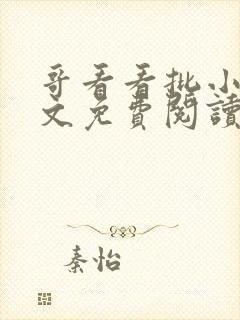 哥看看批小
文免費閱讀
秦怡